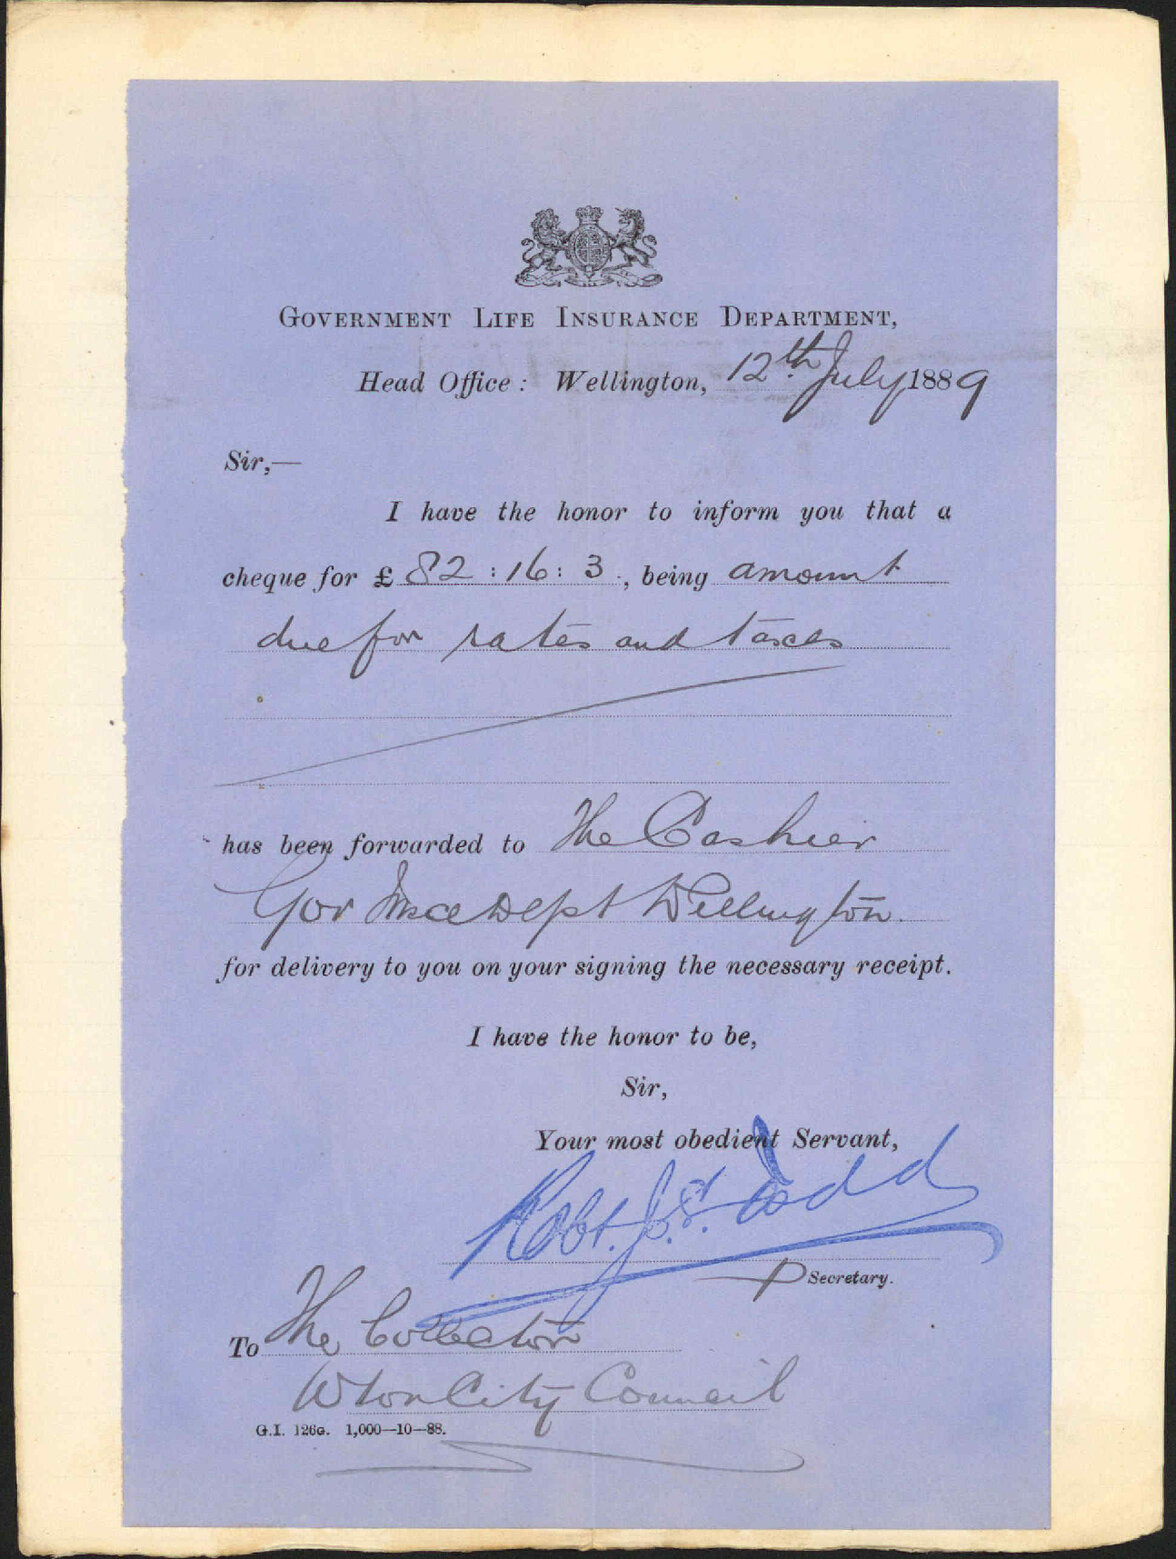 GOVERNMENT LIFE INSURANCE DEPARTMENT,
Head Office: Wellington, 12th July 1889
Sir,—
I have the honor to inform you that a
cheque for £ 82 : 16 : 3, being amount
due for rates and taxes
has been forwarded to The Cashier
Gov Insce Dept Wellington.
for delivery to you on your signing the necessary receipt.
I have the honor to be,
Sir,
Your most obedient Servant,
Robt. J. St. Todd
p Secretary.
To The Collector
Wton City Council
G.I. 126G. 1,000—10—88.